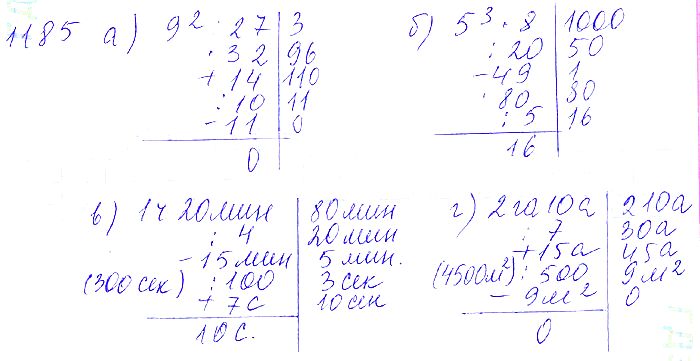 1185 а) 9² : 27 | 3
· 32 | 96
+ 14 | 110
: 10 | 11
- 11 | 0
0
б) 5³ · 8 | 1000
: 20 | 50
- 49 | 1
· 80 | 80
: 5 | 16
16
в) 1ч 20мин | 80мин
: 4 | 20мин
- 15мин | 5мин.
(300сек) : 100 | 3сек
+ 7с | 10сек
10с.
г) 2га10а | 210а
: 7 | 30а
+ 15а | 45а
(4500м²) : 500 | 9м²
- 9м² | 0
0